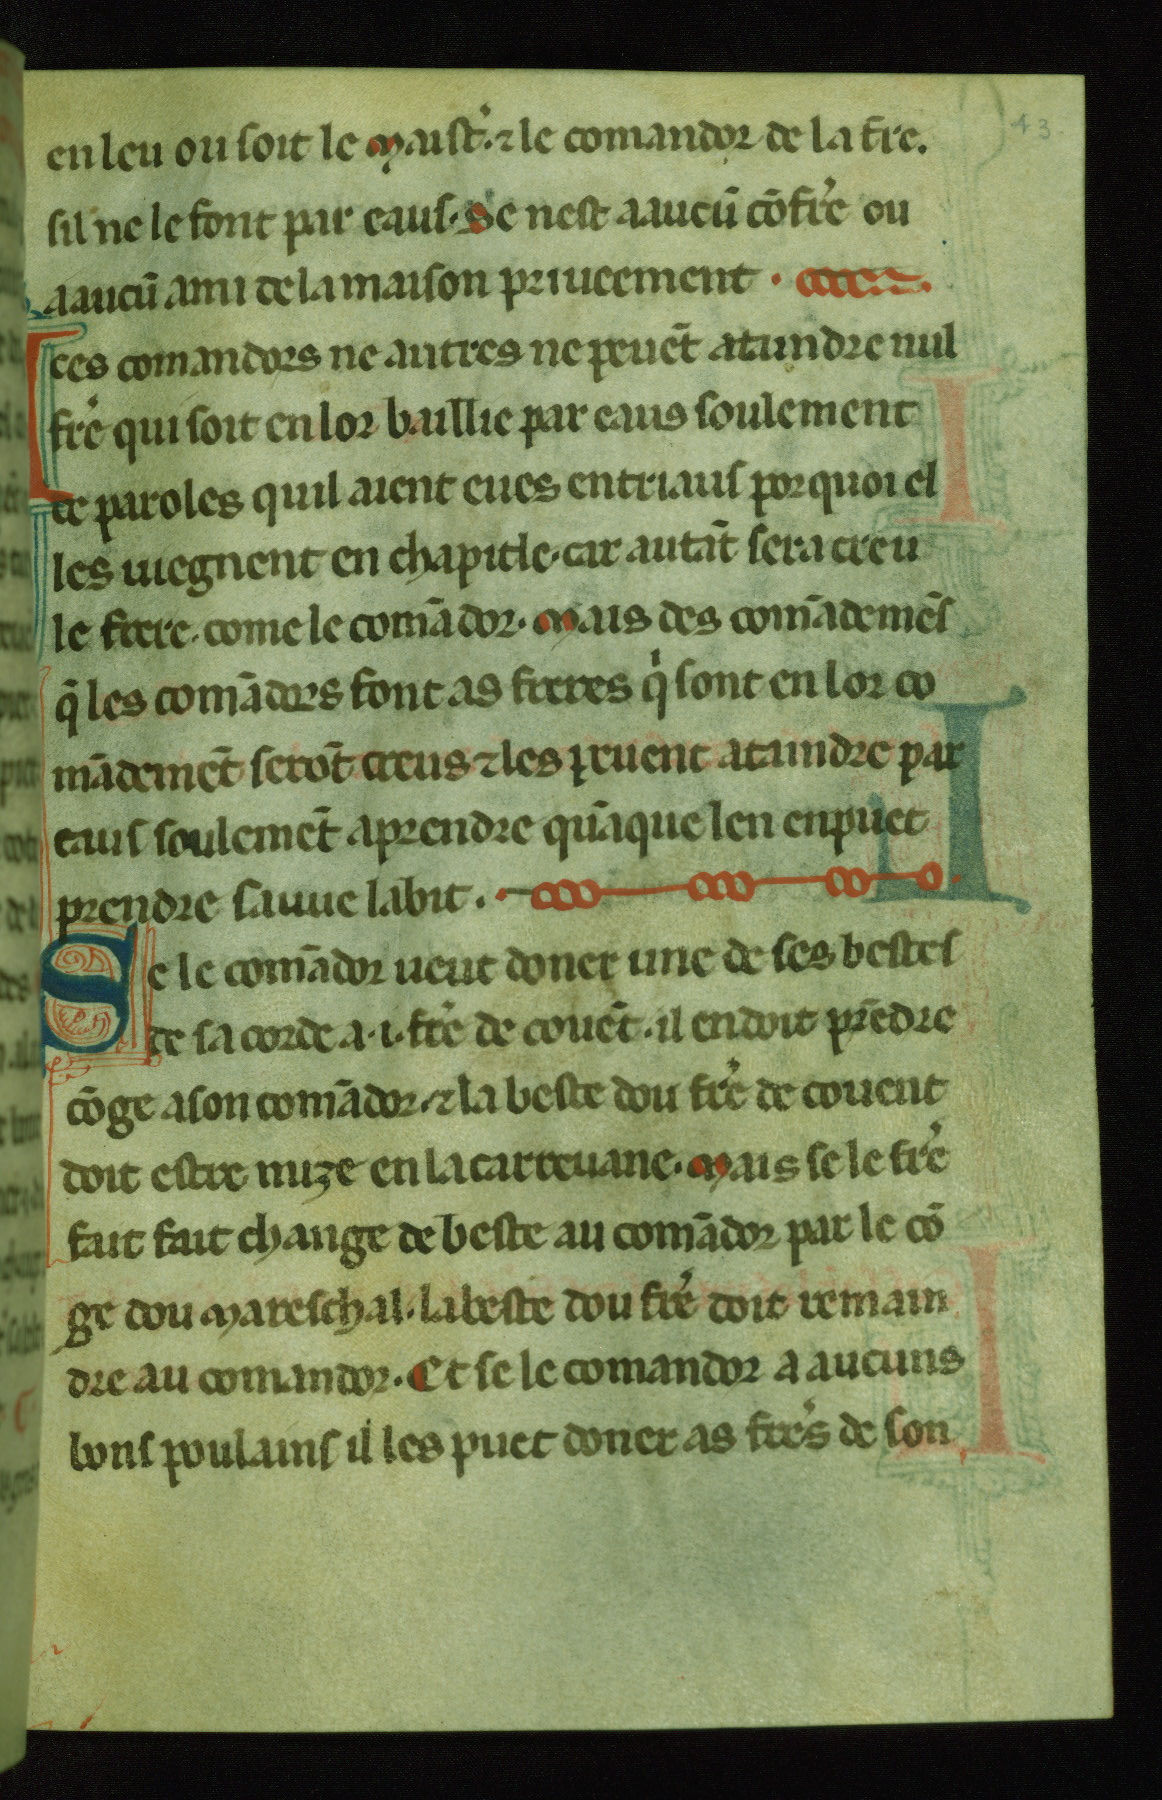 en leu ou soit le Maist'. ⁊ le comandor de la tre.
sil ne le font par eaus. Se nest a aucū cōfr'e ou
a aucū ami de la maison priueement .
Les comandors ne autres ne peuēt ataindre nul
fr'e qui soit en lor baillie par eaus soulement
de paroles quil aient eues entriaus por quoi el
les uiegnent en chapitle. car autāt sera creu
le frere. come le comādor. Mais des comādemēs
q̄ les comādors font as freres q'i sont en lor co
mādemēt serōt creus ⁊ les peuent ataindre par
eaus soulemēt a prendre quāque len en puet
prendre sauue labit .
Se le comādor ueut doner une de ses bestes
de sa corde a .i. fr'e de couēt. il en doit prēdre
cōge a son comādor. ⁊ la beste dou fr'e de couent
doit estre mize en la carreuane. Mais se le fr'e
fait fait change de beste au comādor par le cō
ge dou Mareschal. la beste dou fr'e doit remain
dre au comandor. Et se le comandor a aucuns
bons poulains il les puet doner as fr'es de son
43